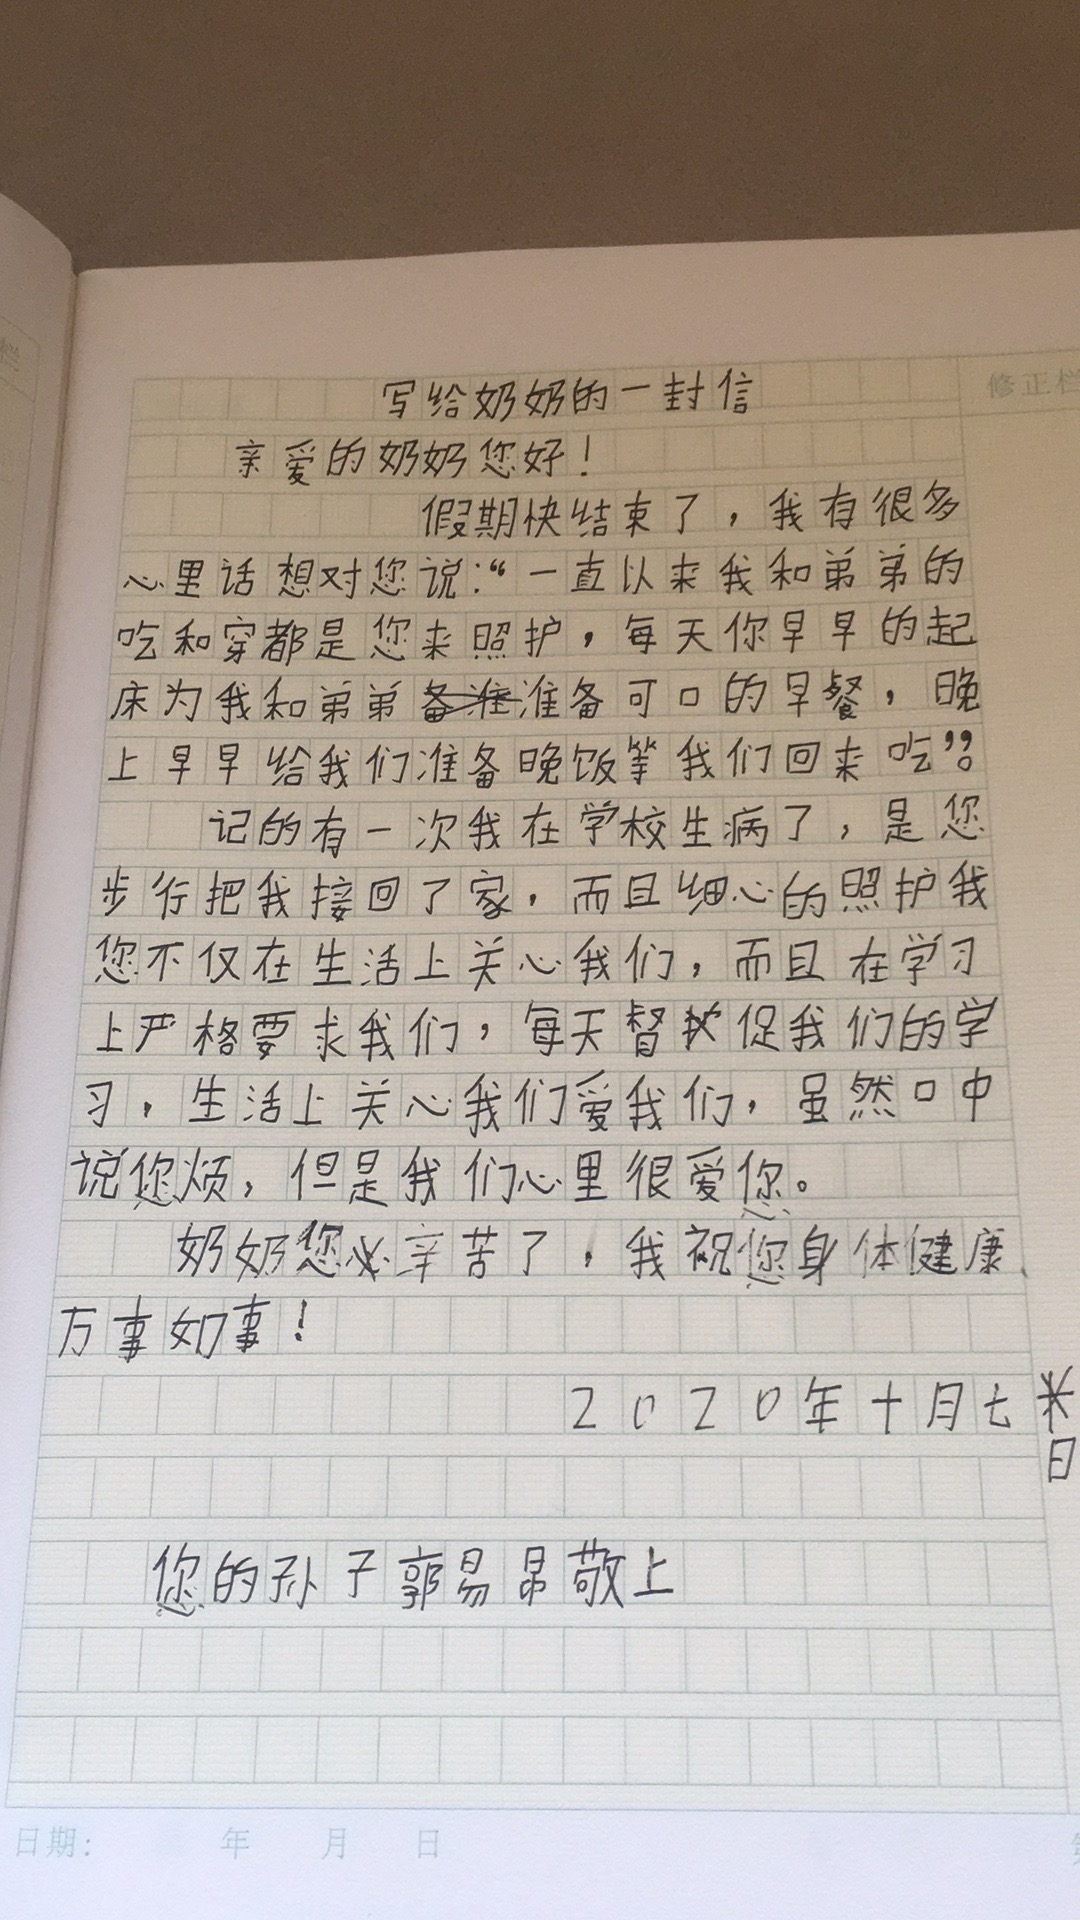 修正栏
写给奶奶的一封信
亲爱的奶奶您好！
假期快结束了，我有很多
心里话想对您说：“一直以来我和弟弟的
吃和穿都是您来照护，每天你早早的起
床为我和弟弟备准准备可口的早餐，晚
上早早给我们准备晚饭等我们回来吃”。
记的有一次我在学校生病了，是您
步行把我接回了家，而且细心的照护我
您不仅在生活上关心我们，而且在学习
上严格要求我们，每天督促我们的学
习，生活上关心我们爱我们，虽然口中
说您烦，但是我们心里很爱您。
奶奶您辛苦了，我祝您身体健康、
万事如事！
2020年十月七
日
您的孙子郭易昂敬上
日期： 年 月 日